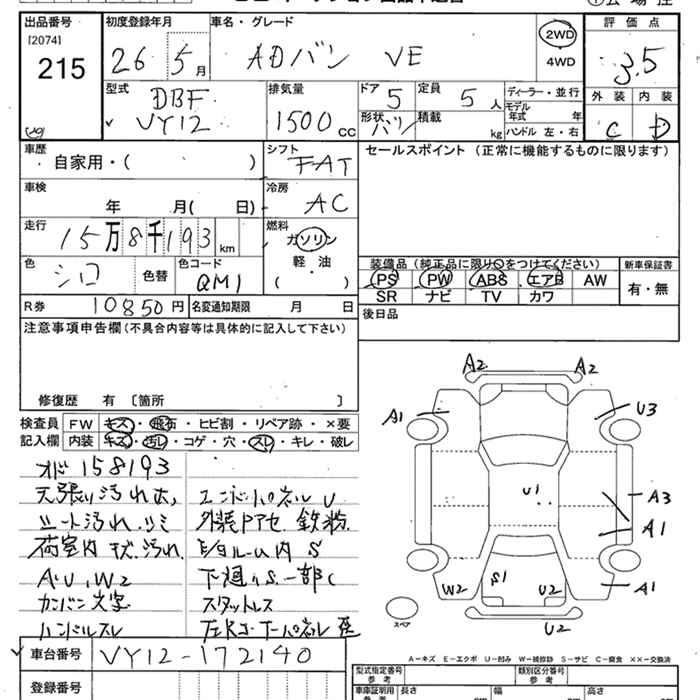 出品番号
[2074]
215
初度登録年月
26 5月
車名・グレード
ADバン VE
2WD
4WD
評価点
3.5
外装 内装
C D
型式
DBF
VY12
排気量
1500 CC
ドア 5
定員 5 人
形状 バン
積載 kg
ディーラー・並行
モデル年式 年
ハンドル 左・右
車歴
自家用・( )
シフト
FAT
車検
年 月( 日)
冷房
AC
走行
15万8千193km
燃料
ガソリン
軽・油
( )
色
シロ
色替
色コード
QM1
R券 10850円
名変通知期限 月 日
セールスポイント (正常に機能するものに限ります)
装備品 (純正品に限り○をつけてください)
PS PW ABS エアB AW
SR ナビ TV カワ
新車保証書
有・無
後日品
注意事項申告欄 (不具合内容等は具体的に記入して下さい)
修復歴 有 〔箇所 〕
検査員記入欄
FW キズ・飛石・ヒビ割・リペア跡・×要
内装 キズ・汚レ・コゲ・穴・スレ・キレ・破レ
オド 158193
天張り汚れ大
シート汚れ.シミ
荷室内 キズ.汚れ
AU、W2
カンバン文字
ハンドルスレ
エンドパネル U
外装ドアセ 鉄粉
下廻りS.一部C
スタットレス
A2 A2
A1
U3
U1
A3
A1
A1
W2
S1
U2
U2
スペア
車台番号 VY12-172140
登録番号
A－キズ E－エクボ U－凹み W－補修跡 S－サビ C－腐食 XX－交換済
型式指定番号
参考
類別区分番号
参考
車庫証明用
参考
長さ 幅 高さ